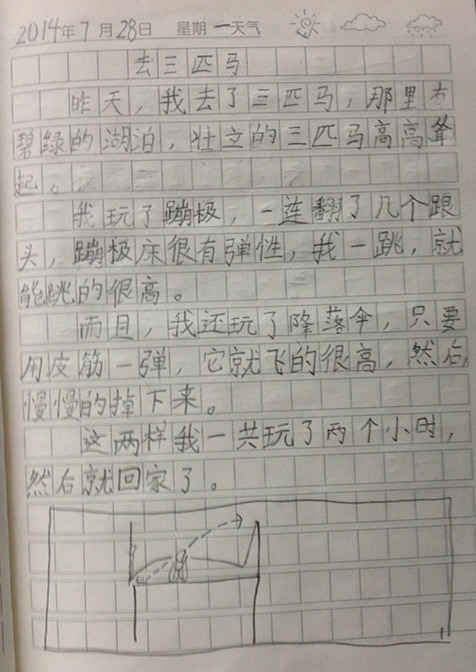 2014年7月28日 星期一天气
去三匹马
昨天，我去了三匹马，那里有
碧绿的湖泊，壮立的三匹马高高耸
起。
我玩了蹦极，一连翻了几个跟
头，蹦极床很有弹性，我一跳，就
能跳的很高。
而且，我还玩了降落伞，只要
用皮筋一弹，它就飞的很高，然后，
慢慢的掉下来。
这两样我一共玩了两个小时，
然后就回家了。